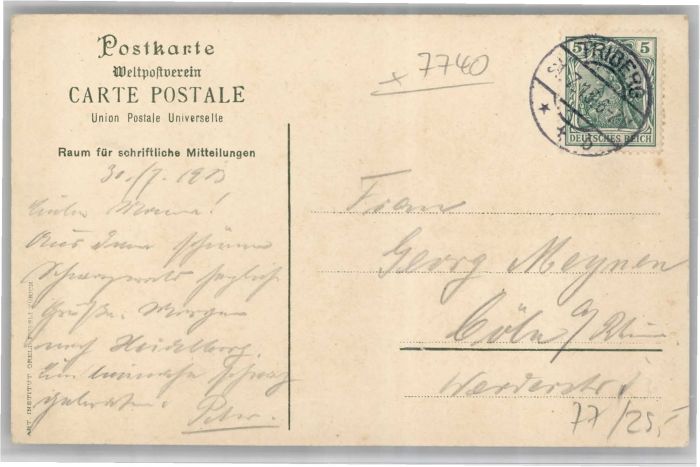 Postkarte
Weltpostverein
CARTE POSTALE
Union Postale Universelle
Raum für schriftliche Mitteilungen
x 7740
5 5
TRIBERG
DEUTSCHES REICH
30./7. 19
Liebe Mama!
Aus dem schönen
Schwarzwald herzliche
Grüße. Morgen
nach Heidelberg.
Peter.
Frau
Georg Meynen
Cöln a/Rhein
Werderstr.
77/25,-
ART. INSTITUT ORELL FÜSSLI ZÜRICH